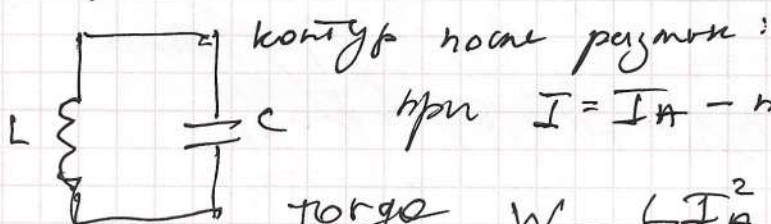 контур после размык:
L
C
при I = I_A -
тогда W L I_A^2